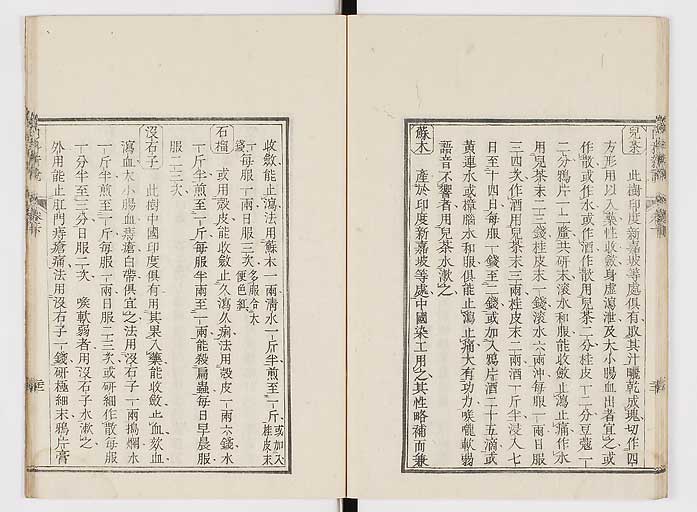 兒茶　此樹印度新嘉坡等處俱有取其汁曬乾成塊切作四
方形用以入藥性收斂身虛瀉泄及大小腸血出者宜之或
作散或作水或作酒作散用兒茶二分桂皮一二分豆蔻一
二分鴉片一二釐共研末滾水和服能收斂止瀉止痛作水
用兒茶末二三錢桂皮末一錢滾水六兩沖每服一兩日服
三四次作酒用兒茶末三兩桂皮末二兩酒一斤半浸入七
日至十四日每服一錢至二錢或加入鴉片酒二十五滴或
黃連水或樟腦水和服俱能止瀉止痛大有功力喉嚨軟弱
語音不響者用兒茶水漱之
蘇木　產於印度新嘉坡等處中國染工用之其性略補而兼
收斂能止瀉法用蘇木一兩清水一斤半煎至一斤或加入桂皮末
錢每服一兩日服三次多服令大便色紅
石榴　或用殼皮能收斂止久瀉久痢法用殼皮一兩六錢水
一斤半煎至一斤每服半兩至一兩能殺扁蟲每日早晨服
服二三次
沒石子　此樹中國印度俱有用其果入藥能收斂止血欬血
瀉血大小腸血痔瘡白帶俱宜之法用沒石子一兩搗爛水
一斤半煎至一斤每服一兩日服二三次或研細作散每服
一分半至三分日服二次　喉軟弱者用沒石子水漱之
外用能止肛門痔瘡痛法用沒石子一錢研極細末鴉片膏